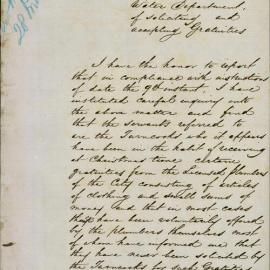 Water Department,
of soliciting and
accepting Gratuities
I have the honor to report
that in compliance with instructions
of date the 9th instant. I have
instituted careful inquiry into
the above matter and find
that the servants referred to
are the Turncocks who it appears
have been in the habit of receiving
at Christmas time certain
gratuities from the Licensed Plumbers
of the City consisting of articles
of clothing and small sums of
money, and that in most cases
they have been voluntarily offered
by the plumbers themselves most
of whom have informed me that
they have never been solicited by
the Turncocks for such Gratuities